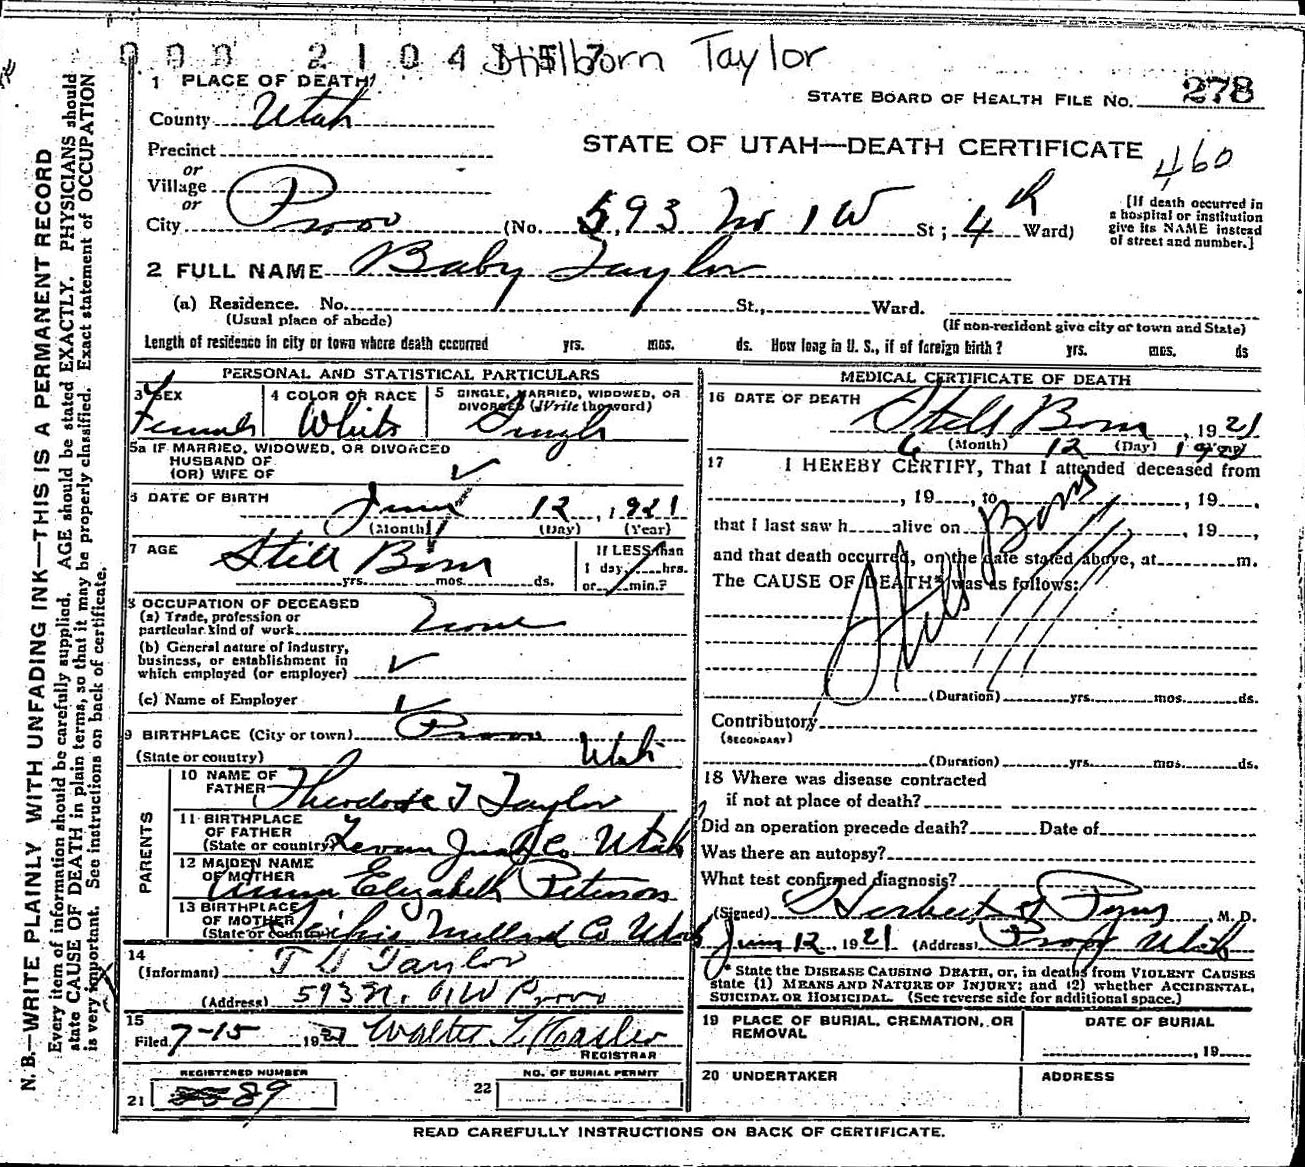 000 2104157
Stillborn Taylor
1 PLACE OF DEATH
STATE BOARD OF HEALTH FILE NO. 278
County Utah
STATE OF UTAH—DEATH CERTIFICATE
460
Precinct
or
Village
or
City Provo (No. 593 No 1 W St; 4th Ward)
[If death occurred in
a hospital or institution
give its NAME instead
of street and number.]
2 FULL NAME Baby Taylor
(a) Residence. No. St., Ward.
(Usual place of abode) (If non-resident give city or town and State)
Length of residence in city or town where death occurred yrs. mos. ds. How long in U. S., if of foreign birth? yrs. mos. ds
PERSONAL AND STATISTICAL PARTICULARS
3 SEX 4 COLOR OR RACE 5 SINGLE, MARRIED, WIDOWED, OR
DIVORCED (Write the word)
Female White Single
5a IF MARRIED, WIDOWED, OR DIVORCED
HUSBAND OF
(OR) WIFE OF
6 DATE OF BIRTH
June 12, 1921
(Month) (Day) (Year)
7 AGE Still Born
yrs. mos. ds.
If LESS than
1 day, hrs.
or min.?
8 OCCUPATION OF DECEASED
(a) Trade, profession or
particular kind of work None
(b) General nature of industry,
business, or establishment in
which employed (or employer)
(c) Name of Employer
9 BIRTHPLACE (City or town) Provo
(State or country) Utah
PARENTS
10 NAME OF
FATHER Theodore T Taylor
11 BIRTHPLACE
OF FATHER
(State or country) Levan Juab Co. Utah
12 MAIDEN NAME
OF MOTHER Anna Elizabeth Peterson
13 BIRTHPLACE
OF MOTHER
(State or country) Millard Co Utah
14
(Informant) Taylor
(Address) 593 N. 1 W Provo
15
Filed 7-15 1921 Walter T. Hasler
REGISTRAR
REGISTERED NUMBER NO. OF BURIAL PERMIT
21 89 22
MEDICAL CERTIFICATE OF DEATH
16 DATE OF DEATH
Still Born, 1921
6 (Month) 12 (Day) 1921
17 I HEREBY CERTIFY, That I attended deceased from
, 19, to , 19,
that I last saw h alive on , 19,
and that death occurred, on the date stated above, at m.
The CAUSE OF DEATH* was as follows:
Still Born
(Duration) yrs. mos. ds.
Contributory
(SECONDARY)
(Duration) yrs. mos. ds.
18 Where was disease contracted
if not at place of death?
Did an operation precede death? Date of
Was there an autopsy?
What test confirmed diagnosis?
(Signed) Herbert, M. D.
June 12 1921 (Address) Provo Utah
* State the DISEASE CAUSING DEATH, or, in deaths from VIOLENT CAUSES
state (1) MEANS AND NATURE OF INJURY; and (2) whether ACCIDENTAL,
SUICIDAL OR HOMICIDAL. (See reverse side for additional space.)
19 PLACE OF BURIAL, CREMATION, OR
REMOVAL
DATE OF BURIAL
, 19
20 UNDERTAKER ADDRESS
READ CAREFULLY INSTRUCTIONS ON BACK OF CERTIFICATE.
N. B.—WRITE PLAINLY WITH UNFADING INK—THIS IS A PERMANENT RECORD
Every item of information should be carefully supplied. AGE should be stated EXACTLY. PHYSICIANS should
state CAUSE OF DEATH in plain terms, so that it may be properly classified. Exact statement of OCCUPATION
is very important. See instructions on back of certificate.